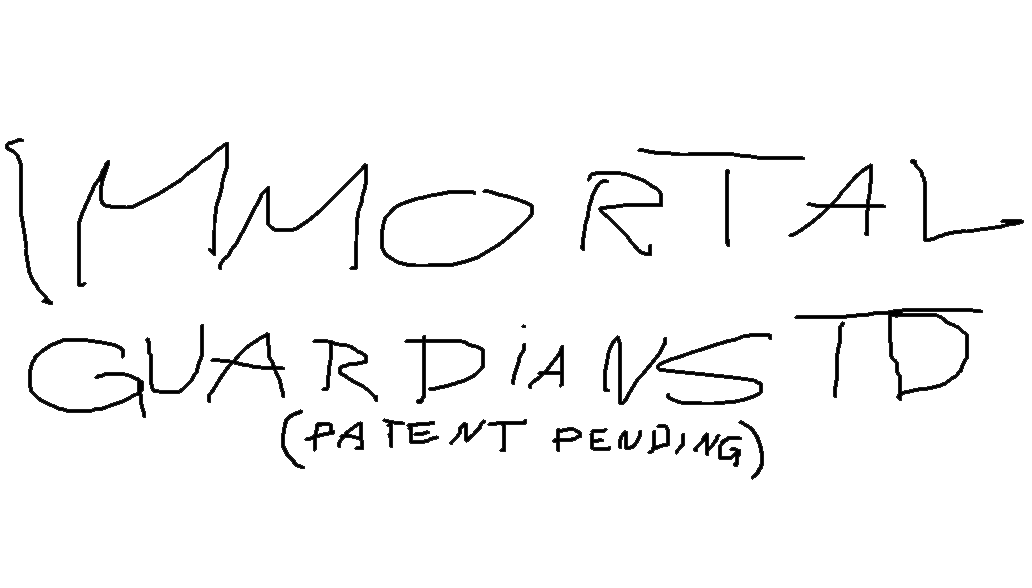 IMMORTAL
GUARDiANS TD
(PATENT PENDING)